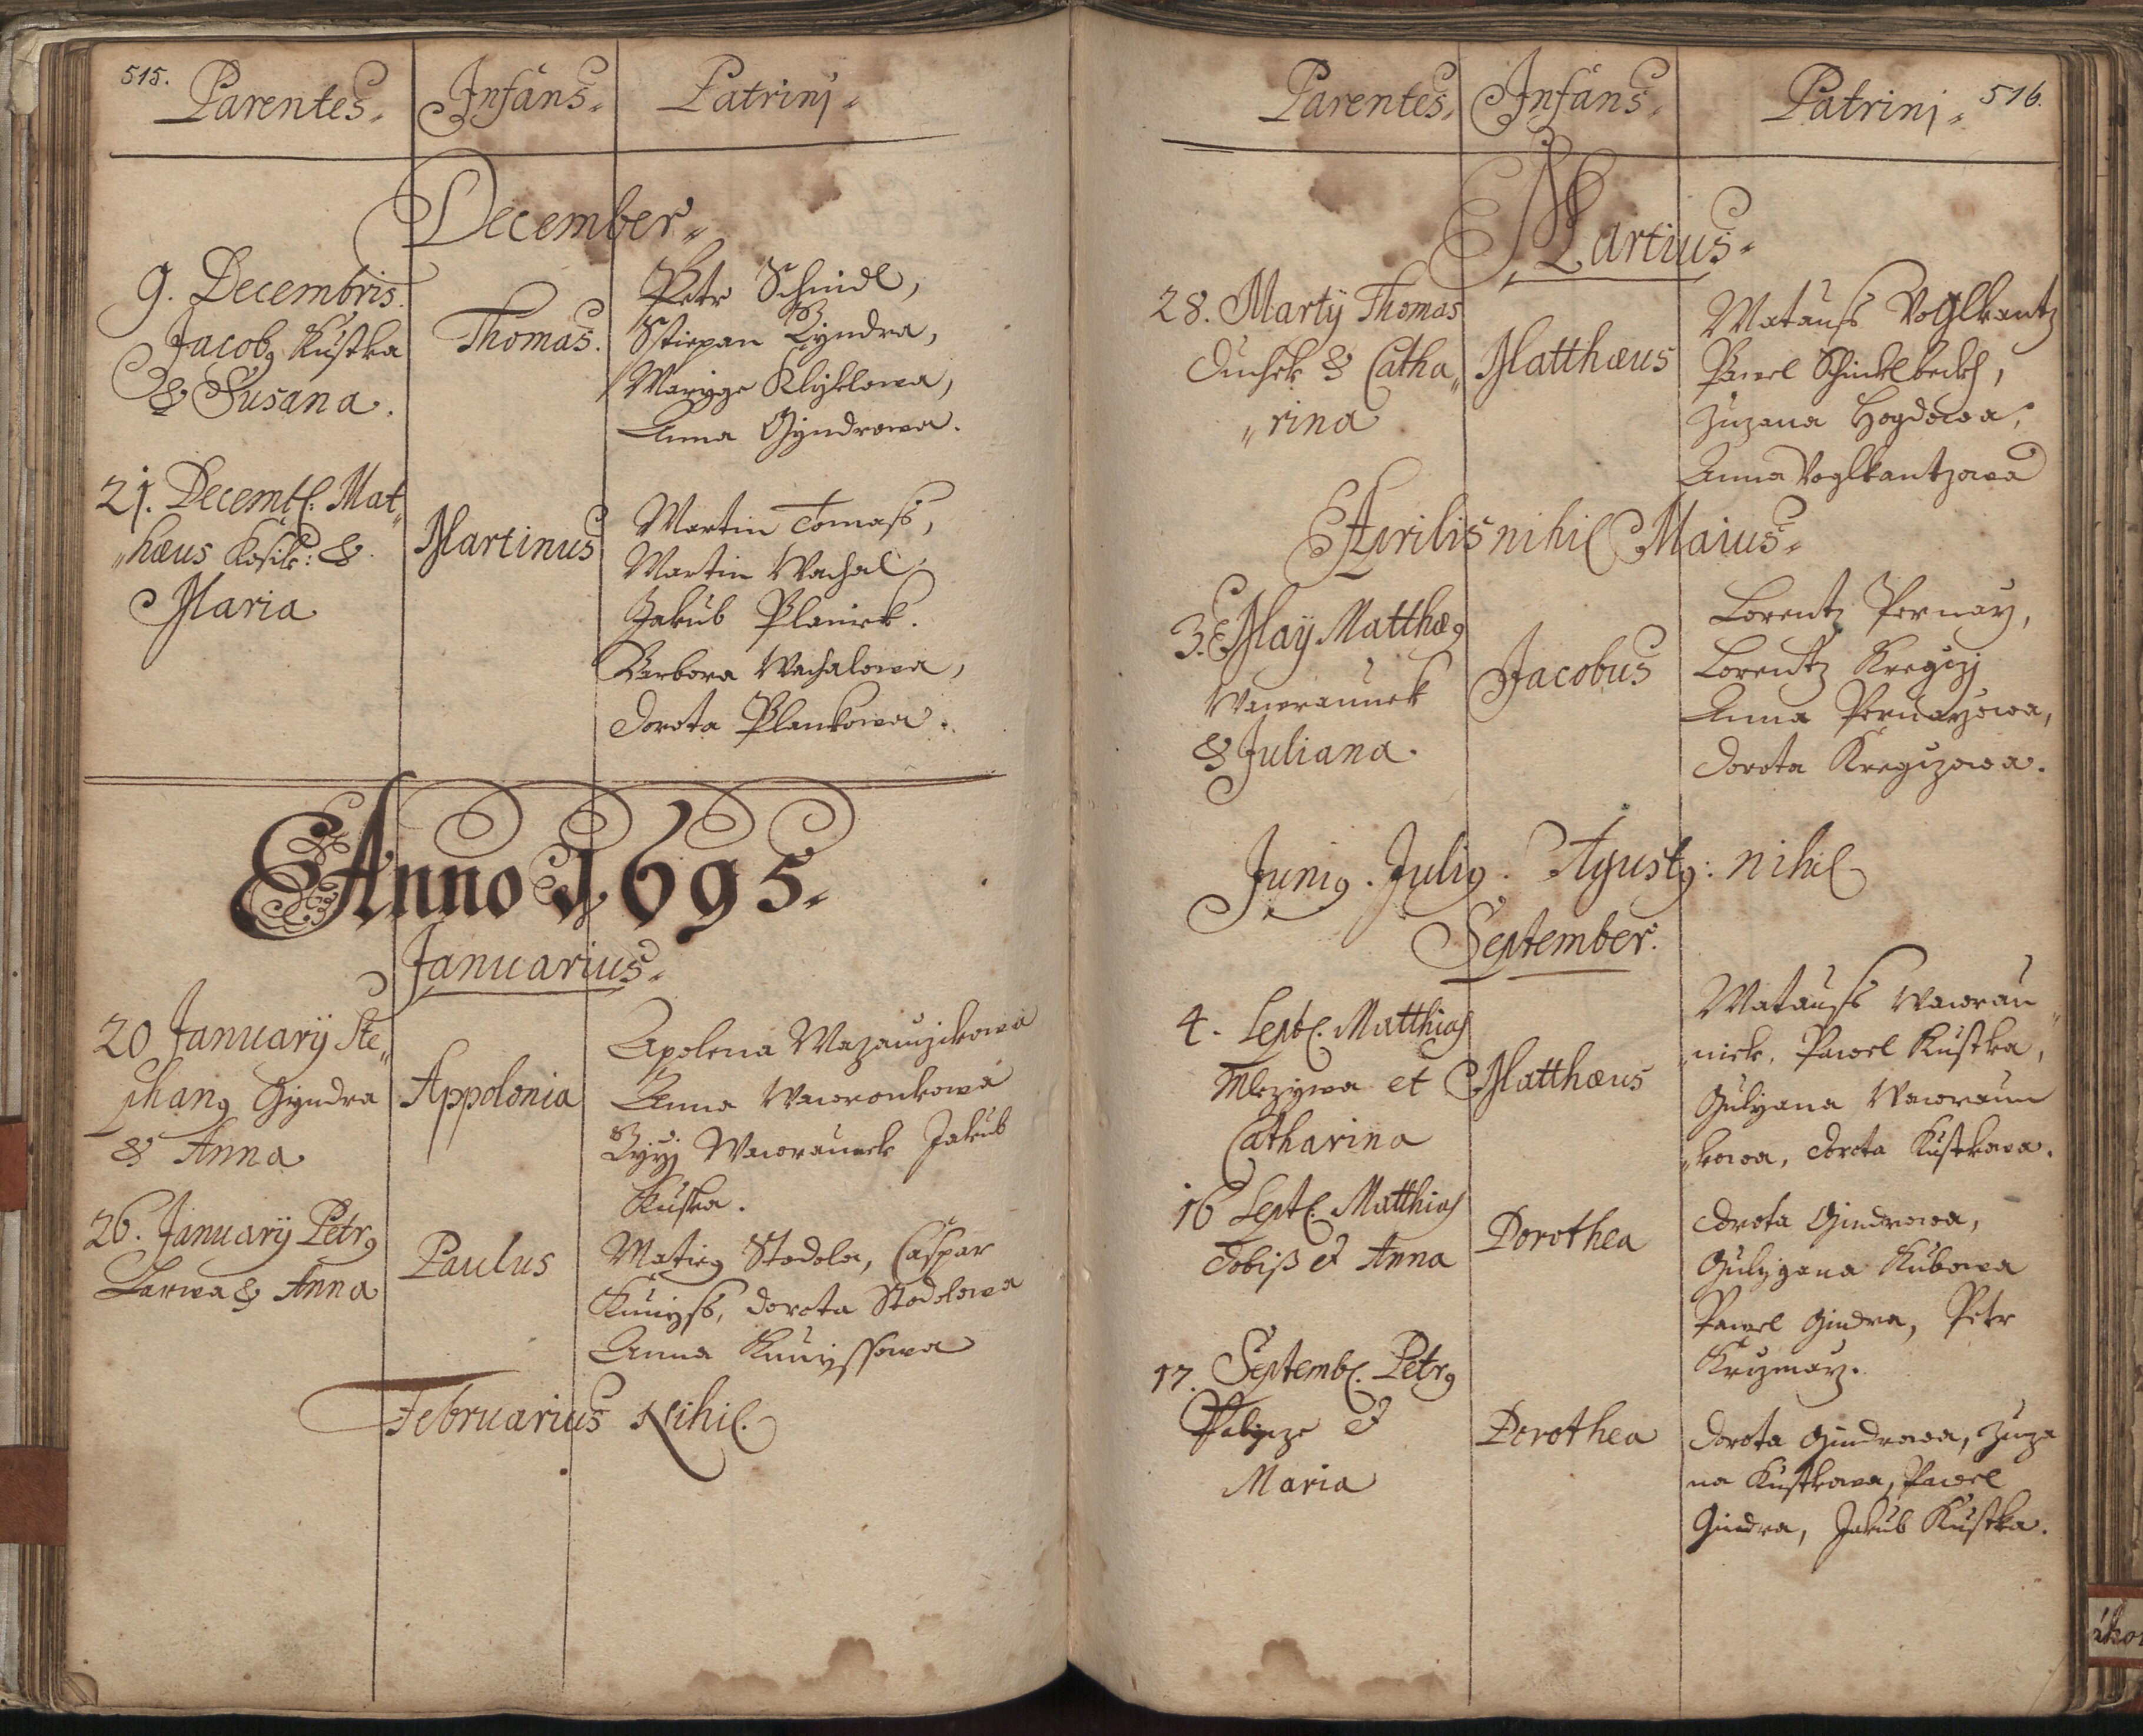 515.
Parentes. Infans. Patrini.
December.
9. Decembris.
Jacobꝯ Kustka
& Susana.
Thomas.
Petr Schindl,
Sstiepan Gyndra,
Maryge Klyklowa,
Anna Gyndrowa.
21. Decemb. Mat„
„hæus Kosik: &
Maria
Martinus
Martin Tomass,
Martin Wachal
Jakub Planiek.
Barbora Wachalowa,
Dorota Plankowa.
Anno 1695.
Januarius.
20 January Ste„
phanꝯ Gyndra
& Anna
Appolonia
Apolena
Anna Wawronkowa
Wawraunek Jakub
Kuska.
26. January Petrꝯ
Larwa & Anna
Paulus
Matieg Stodola, Caspar
Kunyss, Dorota Stodolowa
Anna Kunyssowa
Februarius Nihil.
Parentes. Infans. Patrini. 516.
Martius.
28. Marty Thomas
Duchek & Catha„
„rina
Matthæus
Matauss Voglkantz
Pawel Schinklbeckh,
Zuzana Hogdowa,
Anna Voglkantzowa
Aprilis nihil Maius.
3. May Matthæꝯ
Wawraunek
& Juliana.
Jacobus
Lorentz Pernay,
Lorentz Kregczy
Anna Pernayowa,
Dorota Kregczowa.
Juniꝯ. Juliꝯ. Agustꝯ: nihil
September.
4. Sept. Matthias
Mlezywa et
Catharina
Matthæus
Matauss Wawrau„
niek, Pawel Kustka,
Gulyana Wawraun
„kowa, Dorota Kustkowa.
16 Sept. Matthias
Tobiß et Anna
Dorothea
Dorota Gindrowa,
Gulyyana Kubowa
Pawel Gindra, Petr
17. Septemb. Petrꝯ
et
Maria
Dorothea
Dorota Gindrowa, Zuza
na Kustkowa, Pawel
Gindra, Jakub Kustka.